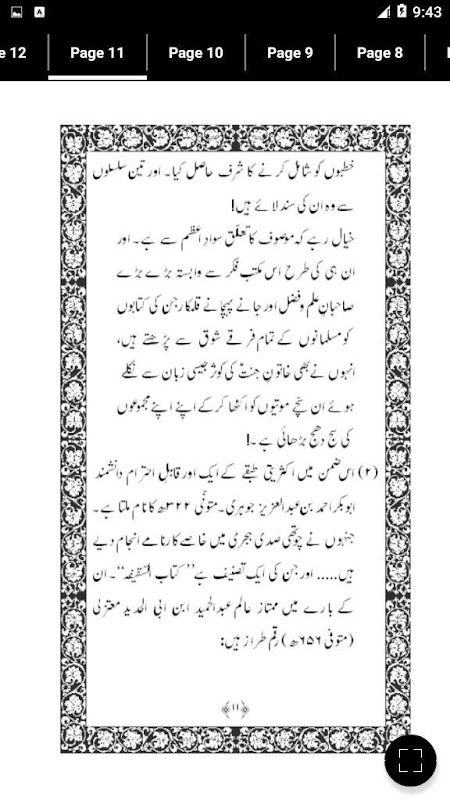 9:43
e 12
Page 11
Page 10
Page 9
Page 8
خطبوں کو شامل کرنے کا شرف حاصل کیا۔ اور تین سلسلوں
سے وہ ان کی سند لائے ہیں!
خیال رہے کہ موصوف کا تعلّق سوادِ اعظم سے ہے۔ اور
ان ہی کی طرح اس مکتبِ فکر سے وابستہ بڑے بڑے
صاحبانِ علم و فضل اور جانے پہچانے قلمکار جن کی کتابوں
کو مسلمانوں کے تمام فرقے شوق سے پڑھتے ہیں،
انہوں نے بھی خاتونِ جنتؑ کی کوثر جیسی زبان سے نکلے
ہوئے ان سچّے موتیوں کو اکٹھا کرکے اپنے اپنے مجموعوں
کی سج دھج بڑھائی ہے۔!
(۲) اس ضمن میں اکثریتی طبقے کے ایک اور قابلِ احترام دانشمند
ابوبکر احمد بن عبدالعزیز جوہری۔ متوفّی ۳۲۲ھ کا نام ملتا ہے۔
جنہوں نے چوتھی صدی ہجری میں خاصے کارنامے انجام دیے
ہیں..... اور جن کی ایک تصنیف ہے ’’کتاب السّقیفہ‘‘۔ ان
کے بارے میں ممتاز عالم عبدالحمید ابن ابی الحدید معتزلی
(متوفی ۶۵۶ھ) رقم طراز ہیں:
۱۱